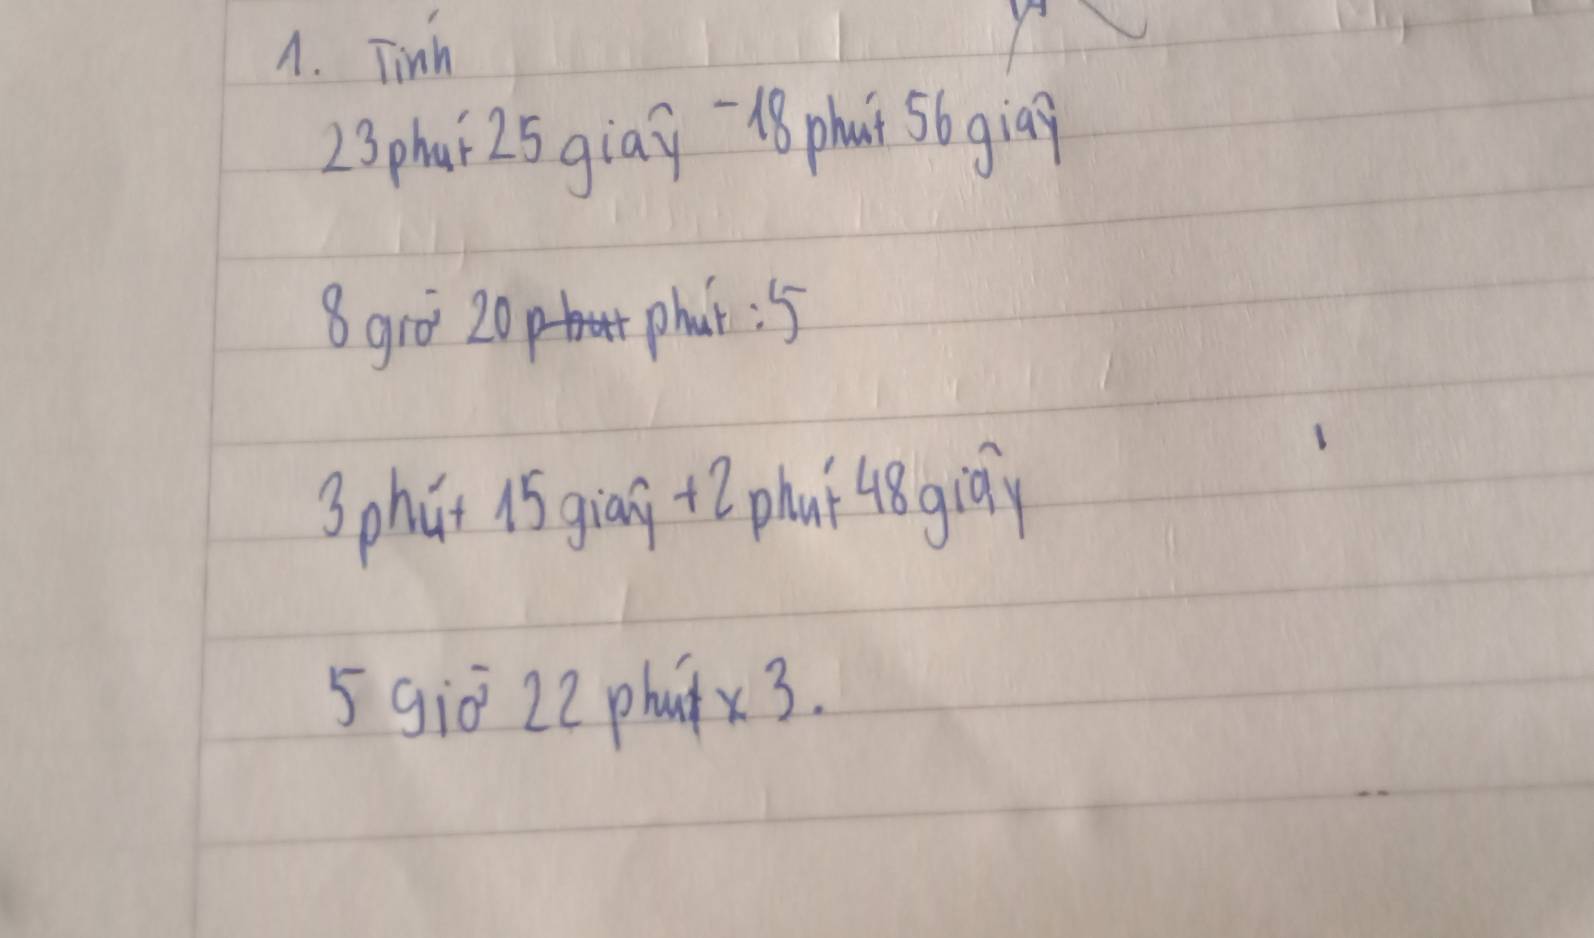 1. Tính
23 phút 25 giây - 18 phút 56 giây
8 giờ 20 phút : 5
3 phút 15 giây + 2 phút 48 giây
5 giờ 22 phút x 3.